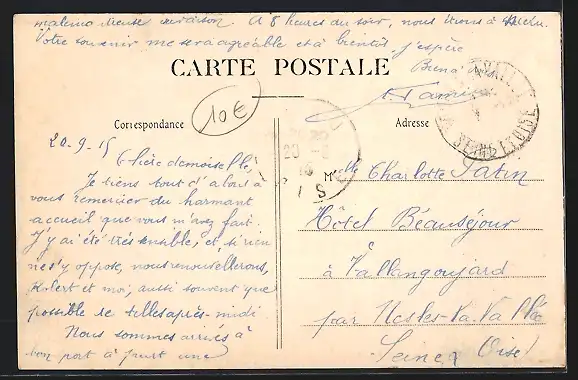 malencontreuse avarison. A 8 heures du soir, nous étions à
Votre souvenir me sera agréable et à bientôt j'espère
Bien à vous
CARTE POSTALE
10€
Correspondance
Adresse
SEINE ET OISE
20-9-15
Chère demoiselle,
Je tiens tout d'abord à
vous remercier du charmant
accueil que vous m'avez fait.
J'y ai été très sensible, et, si rien
ne s'y oppose, nous renouvellerons,
Robert et moi, aussi souvent que
possible de telles après-midi
Nous sommes arrivés à
bon port à part une
Mlle Charlotte Patin
Hôtel Beauséjour
à Vallangoujard
par Nesles-la-Vallée
Seine & Oise)